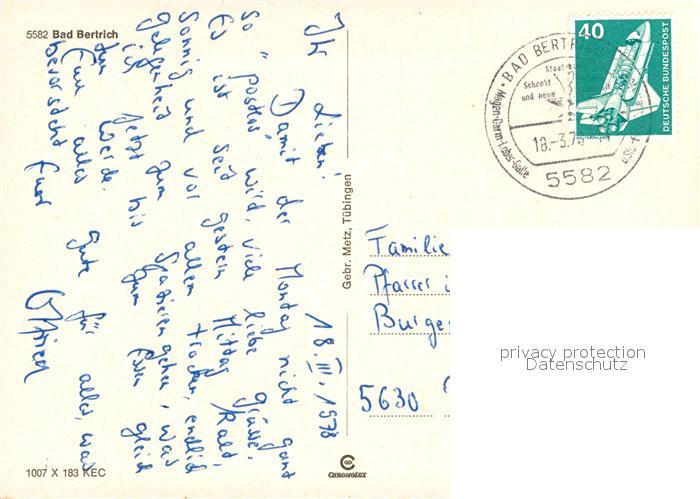 5582 Bad Bertrich
18. III. 1978
Ihr Lieben!
Damit der Montag nicht ganz
so "postlos" wird, viele liebe Grüsse!
Es ist seit gestern Mittag kalt,
sonnig und vor allem trocken, endlich
Gelegenheit zum Spazierengehen, was
ich jetzt bis zum Essen gleich
tun werde.
Euch alles Gute für alles, was
bevorsteht
Euer
1007 X 183 KEC
Gebr. Metz, Tübingen
CHROMOLUX
40
DEUTSCHE BUNDESPOST
BAD BERTRI
Staat
Schenkt
und neue
Magen-Darm-Leber-Galle
18.-3.78
5582
Familie
Pfarrer
Burge
5630
privacy protection
Datenschutz